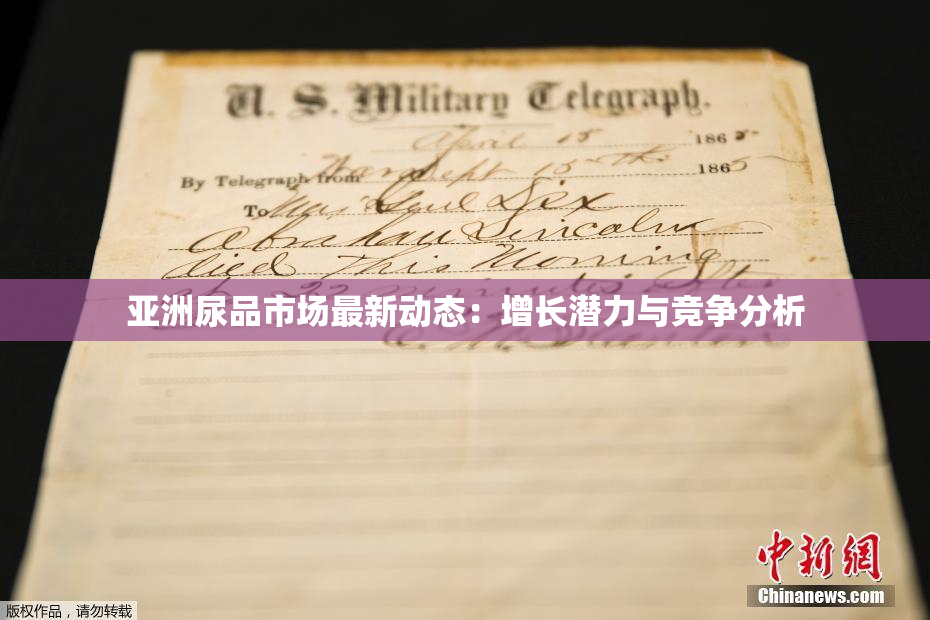 U. S. Military Telegraph.
April 15 1865
By Telegraph from War Dept 15th 1865
To Maj Genl Dix
Abraham Lincoln
died This Morning
at 22 minutes after
亚洲尿品市场最新动态：增长潜力与竞争分析
E. M. Stanton
中新网
Chinanews.com
版权作品，请勿转载